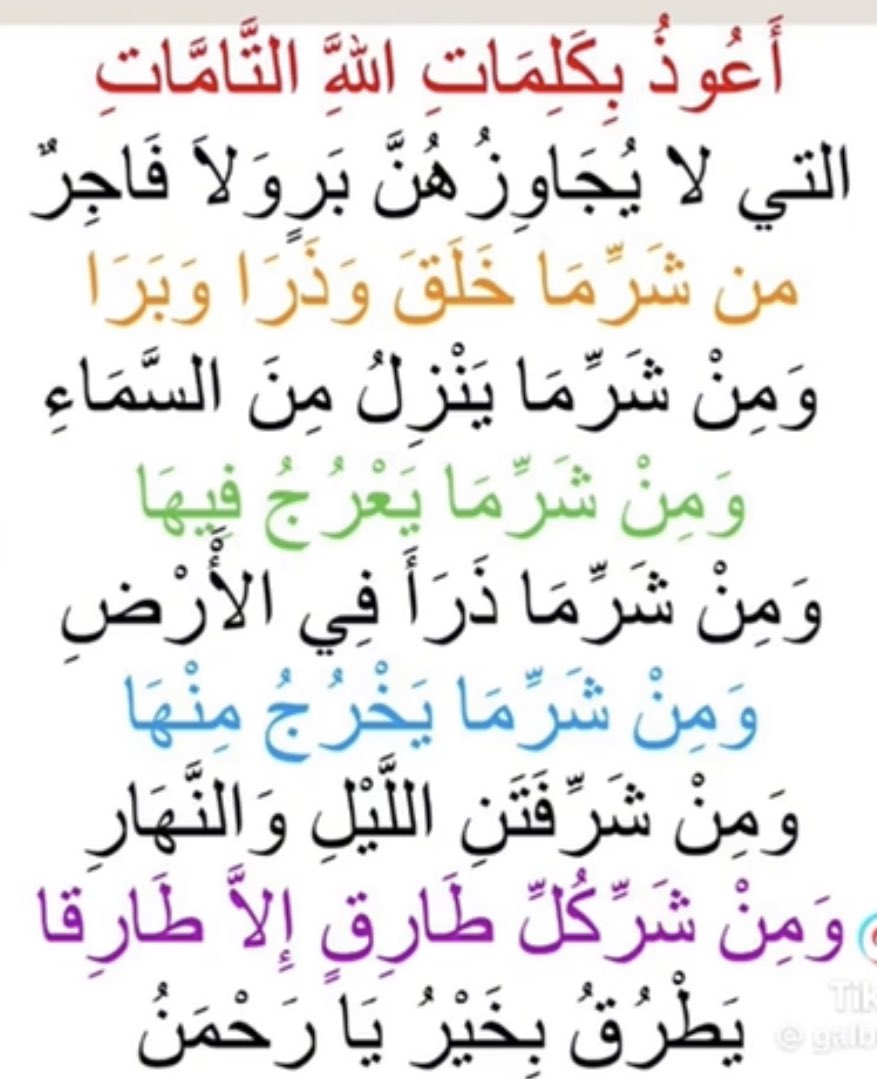 أَعُوذُ بِكَلِمَاتِ اللهَِّ التَّامَّاتِ
التي لا يُجَاوِزُهُنَّ بَرٍوَلاَ فَاجِرٌ
من شَرِّمَا خَلَقَ وَذَرَا وَبَرَا
وَمِنْ شَرِّمَا يَنْزِلُ مِنَ السَّمَاءِ
وَمِنْ شَرِّمَا يَعْرُجُ فِيهَا
وَمِنْ شَرِّمَا ذَرَأَ فِي الأَْرْضِ
وَمِنْ شَرِّمَا يَخْرُجُ مِنْهَا
وَمِنْ شَرِّفَتَنِ اللَّيْلِ وَالنَّهَارِ
وَمِنْ شَرِّكُلِّ طَارِقٍ إِلاَّ طَارِقا
يَطْرُقُ بِخَيْرُ يَا رَحْمَنُ